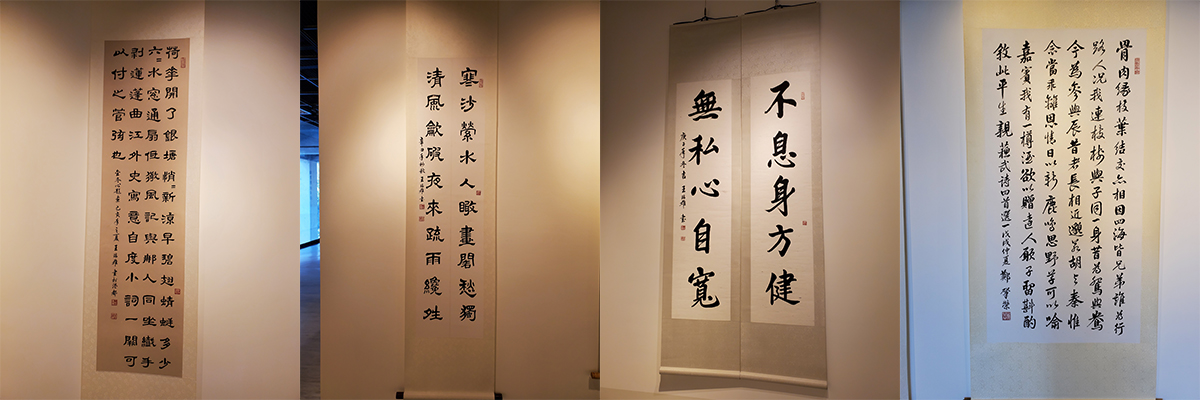 荷花開了銀塘悄=新涼早碧翅蜻蜓多少
六=水窗通扇底微風記與那人同坐纖手
剝蓮蓬曲江外史寫意自度小詞一闋可
以付之管弦也
寒沙縈水人瞰畫閣愁獨
清風夜來疏雨纔姓
不息身方健
無私心自寬
庚子年冬書 王
骨肉緣枝葉結交亦相因四海皆兄弟誰為行
路人況我連枝樹與子同一身昔為鴛與鴦
今為參與辰昔者長相近邈若胡與秦惟
念當乖離恩情日以新鹿鳴思野草可以喻
嘉賓我有一樽酒欲以贈遠人願子留斟酌
敘此平生親 蘇武詩四首選一 戊戌仲夏 鄭榮